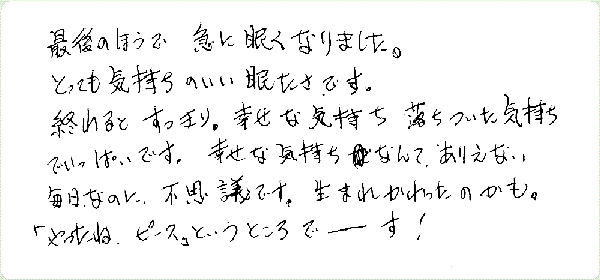 最後のほうで 急に眠くなりました。
とっても気持ちのいい眠たさです。
終わると すっきり。幸せな気持ち 落ちついた気持ち
でいっぱいです。 幸せな気持ちなんて、ありえない
毎日なのに、不思議です。生まれかわったのかも。
「やったね、ピース」というところでーーす!